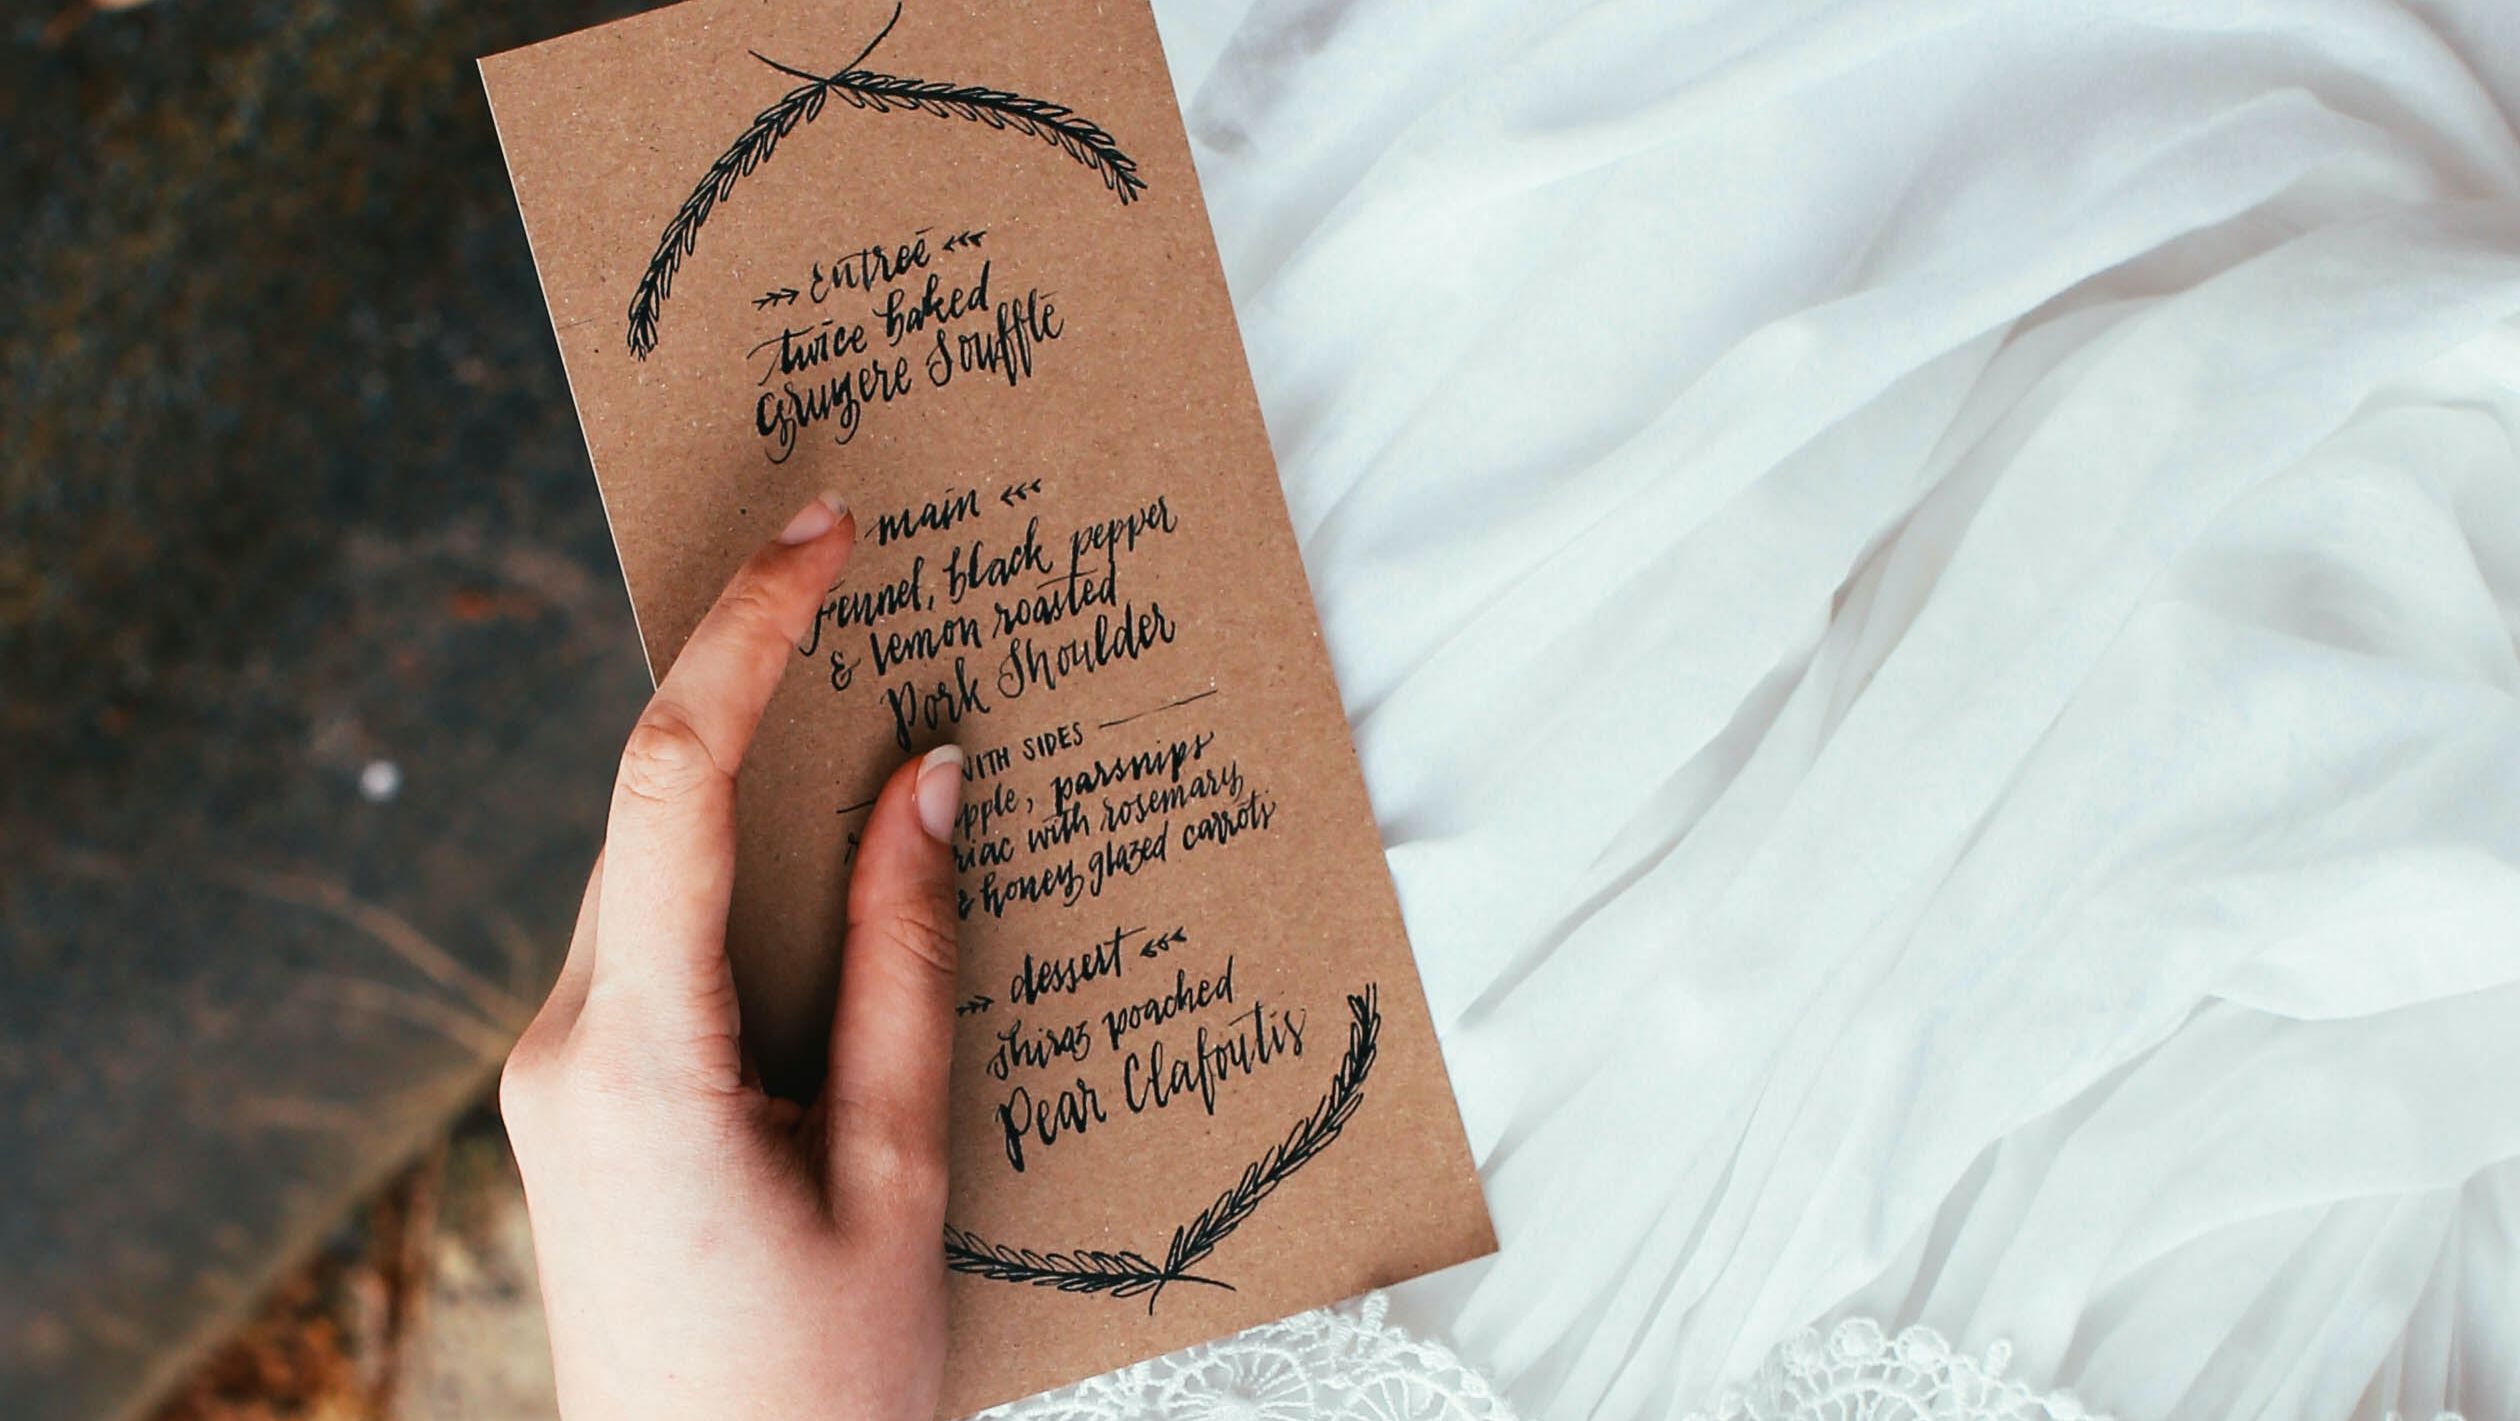 Entreē
twice baked
Gruyere Soufflē
main
Fennel, black pepper
& lemon roasted
Pork Shoulder
WITH SIDES
parsnips
with rosemary
& honey glazed carrots
dessert
shiraz poached
Pear Clafoutis